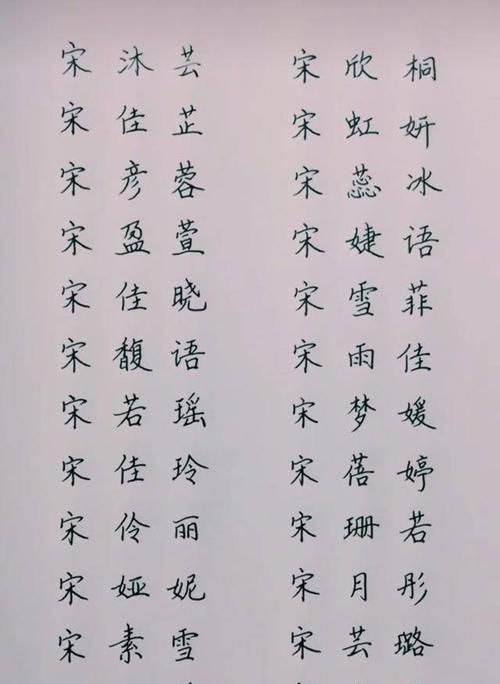 宋沐芸 宋欣桐
宋佳芷 宋虹妍
宋彦蓉 宋蕊冰
宋盈萱 宋婕语
宋佳晓 宋雪菲
宋馥语 宋雨佳
宋若瑶 宋梦媛
宋佳玲 宋蓓婷
宋伶丽 宋珊若
宋娅妮 宋月彤
宋素雪 宋芸璐